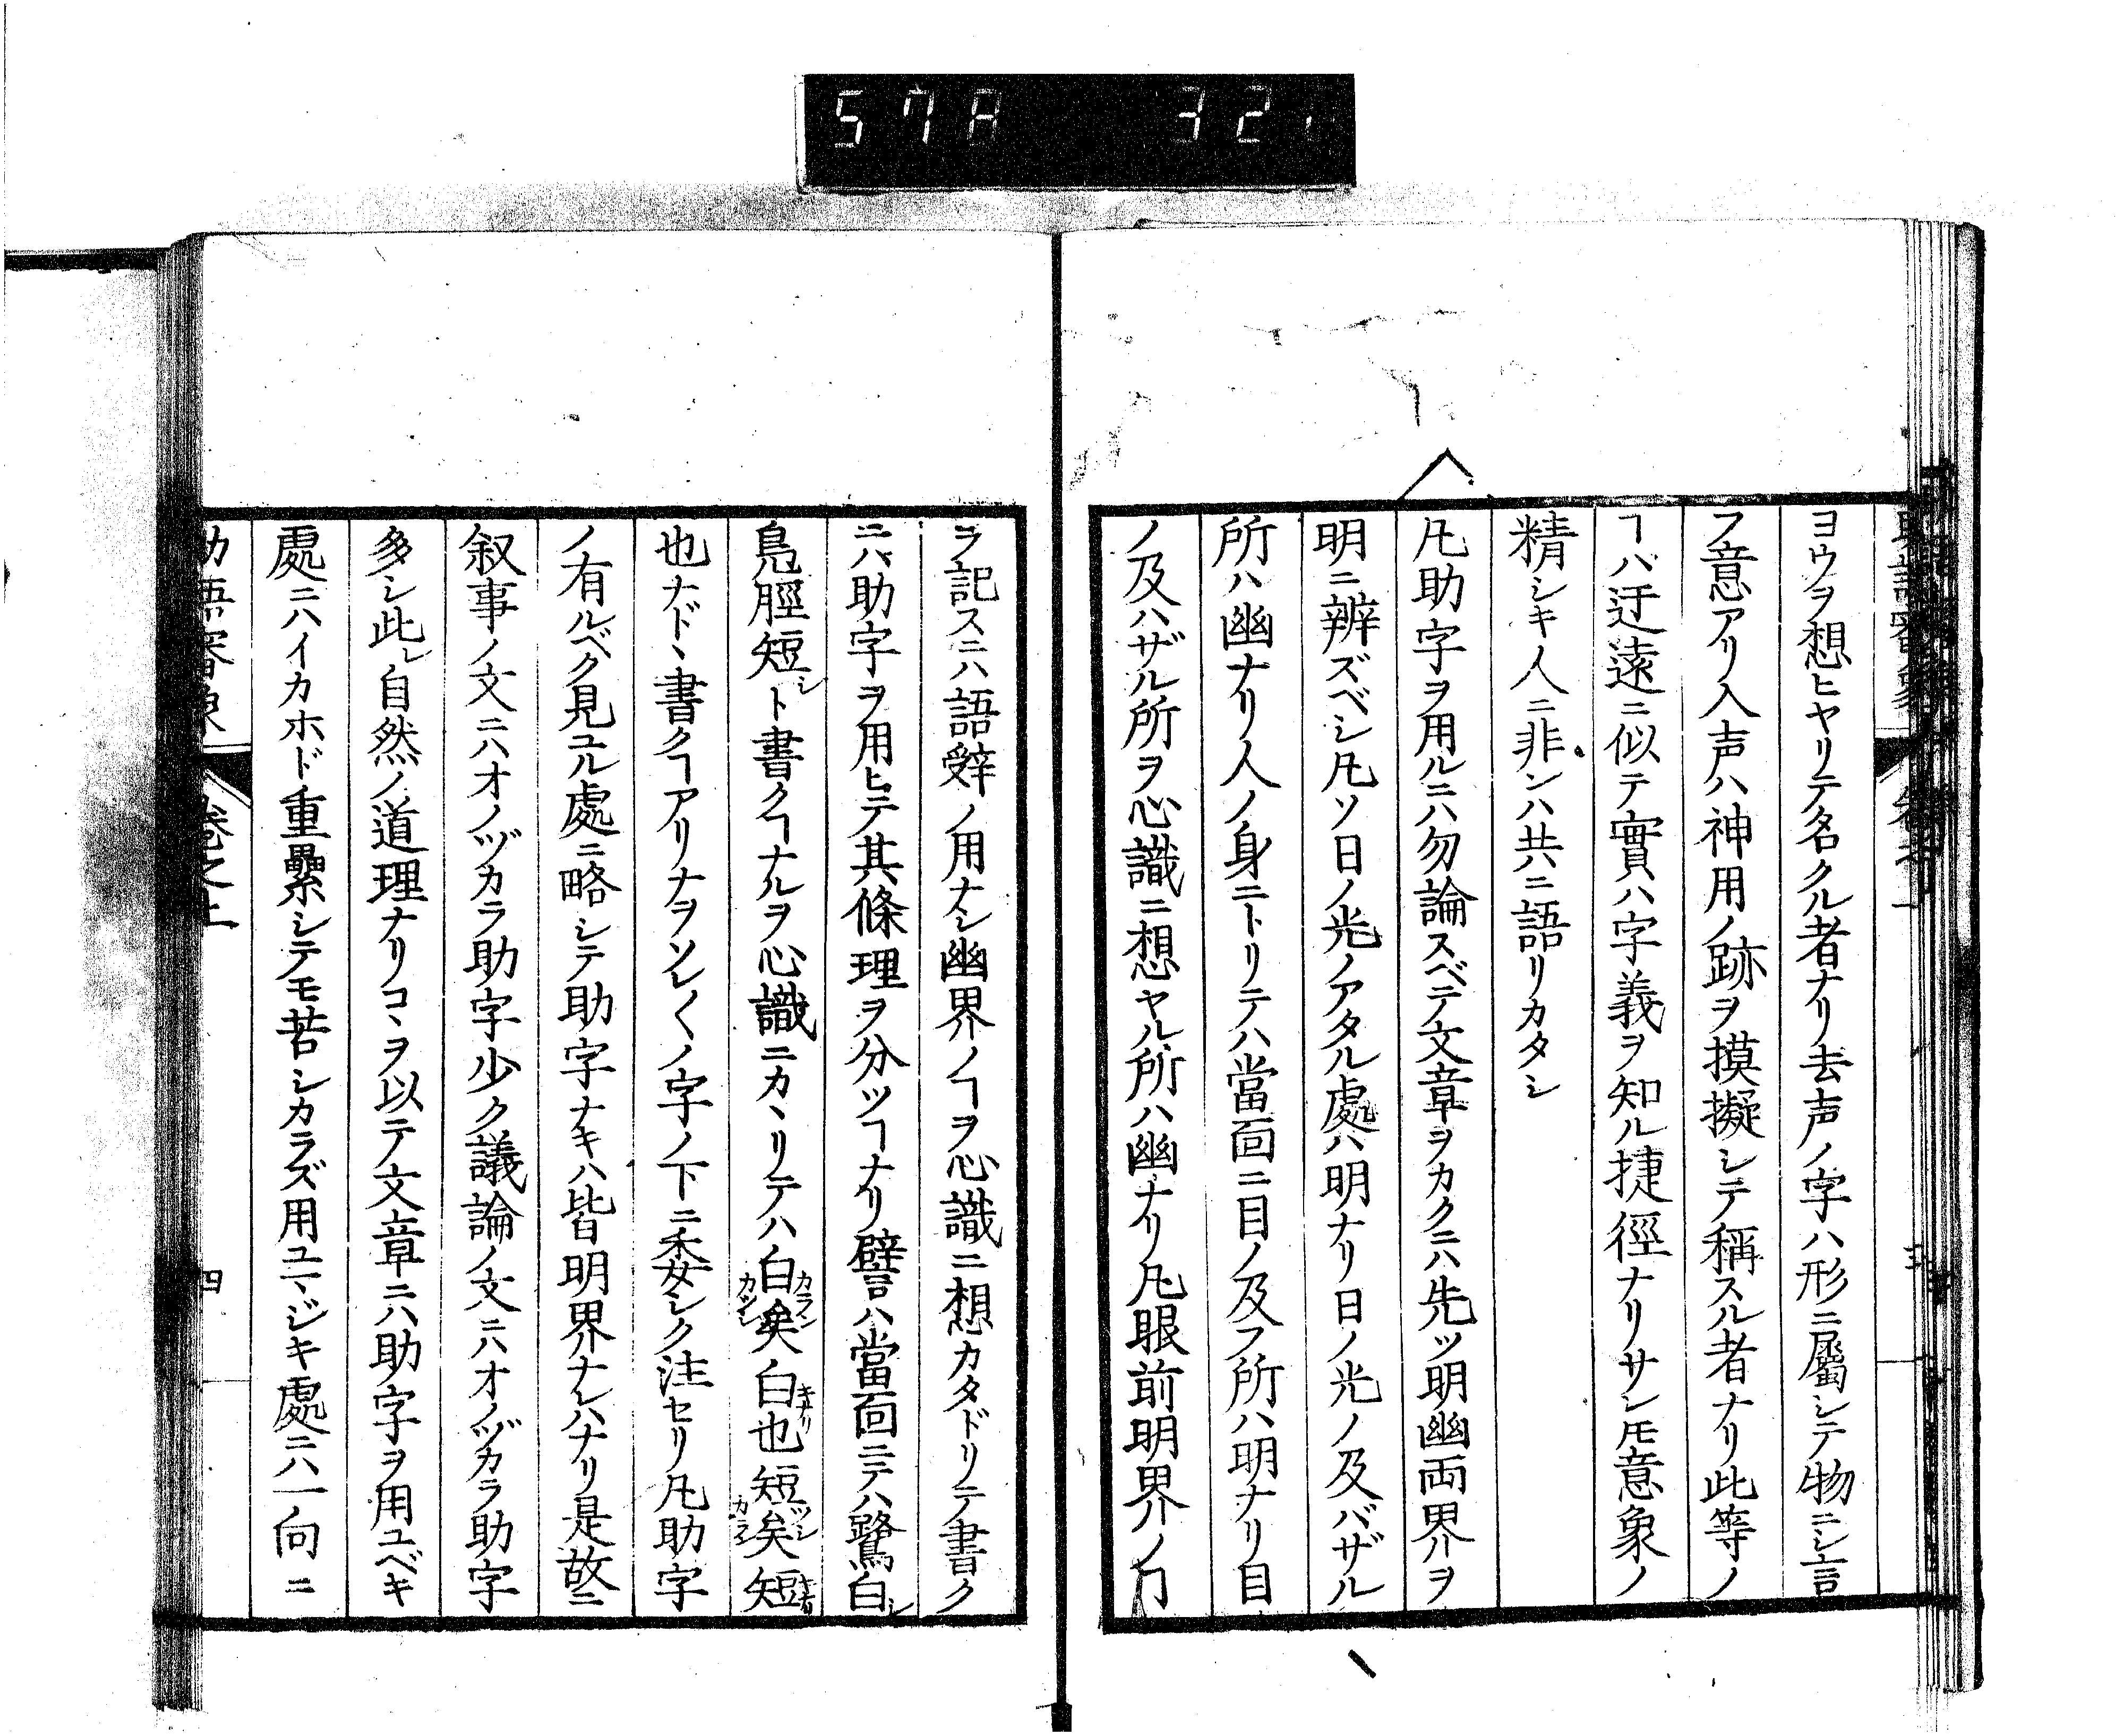 57A 32
ヨウヲ想ヒヤリテ名クル者ナリ去声ノ字ハ形ニ屬シテ物ニシ言
フ意アリ入声ハ神用ノ跡ヲ摸擬シテ稱スル者ナリ此等ノ
ヿハ迂遠ニ似テ實ハ字義ヲ知ル捷徑ナリサレ𪜈意象ノ
精シキ人ニ非ンハ共ニ語リカタシ
凡助字ヲ用ルニハ勿論スベテ文章ヲカクニハ先ツ明幽両界ヲ
明ニ辨ズベシ凡ソ日ノ光ノアタル處ハ明ナリ日ノ光ノ及バザル
所ハ幽ナリ人ノ身ニトリテハ當面ニ目ノ及フ所ハ明ナリ目
ノ及ハザル所ヲ心識ニ想ヤル所ハ幽ナリ凡眼前明界ノヿ
ヲ記スニハ語辤ノ用ナシ幽界ノヿヲ心識ニ想カタドリテ書ク
ニハ助字ヲ用ヒテ其條理ヲ分ツヿナリ譬ハ當面ニテハ鷺白シ
鳬脛短シト書クヿナルヲ心識ニカヽリテハ白矣白也短矣短
也ナドヽ書クヿアリナヲソレ〱ノ字ノ下ニ委シク注セリ凡助字
ノ有ルベク見ユル處ニ略シテ助字ナキハ皆明界ナレハナリ是故ニ
叙事ノ文ニハオノヅカラ助字少ク議論ノ文ニハオノヅカラ助字
多シ此レ自然ノ道理ナリコヽヲ以テ文章ニハ助字ヲ用ユベキ
處ニハイカホド重纍シテモ苦シカラズ用ユマジキ處ニハ一向ニ
助語審象 卷之上 四